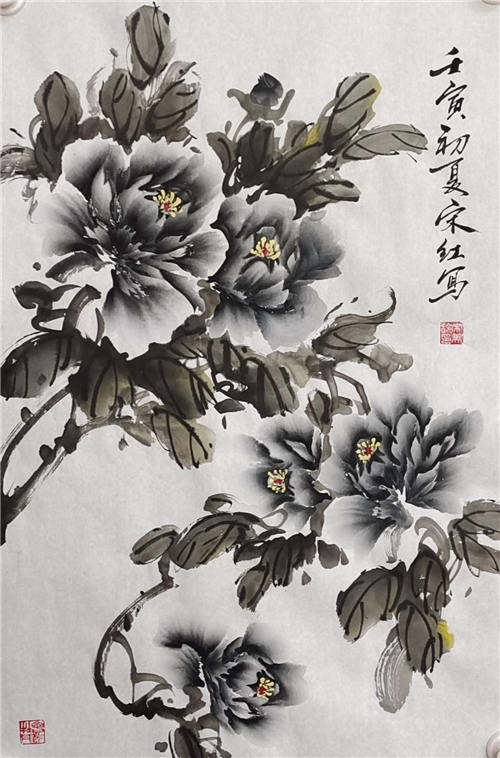 壬寅初夏宋红写